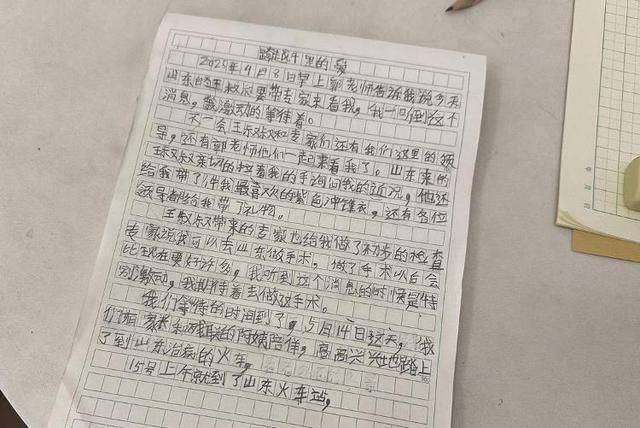 跨越千里的爱
2025年4月8日早上郭老师告诉我说今天
山东的王叔叔要带专家来看我,我一听到这个
消息,激动的等待着。
不一会王叔叔和专家们还有我们这里的领
导,还有郭老师他们一起来看我了。山东来的
王叔叔亲切的拉着我的手询问我的近况,他还
给我带了件我最喜欢的紫色冲锋衣,还有各位
领导都给我带了礼物。
王叔叔带来的专家也给我做了初步的检查
专家说我可以去山东做手术,做了手术以后会
比现在要好许多,我听到这个消息的时候是特
别激动,我期待着去做这手术。
我们等待的时间到了,5月14日这天,我
们有家长和的阿姨陪伴,高高兴兴地踏上
了到山东治病的火车。
15号上午就到了山东火车站,